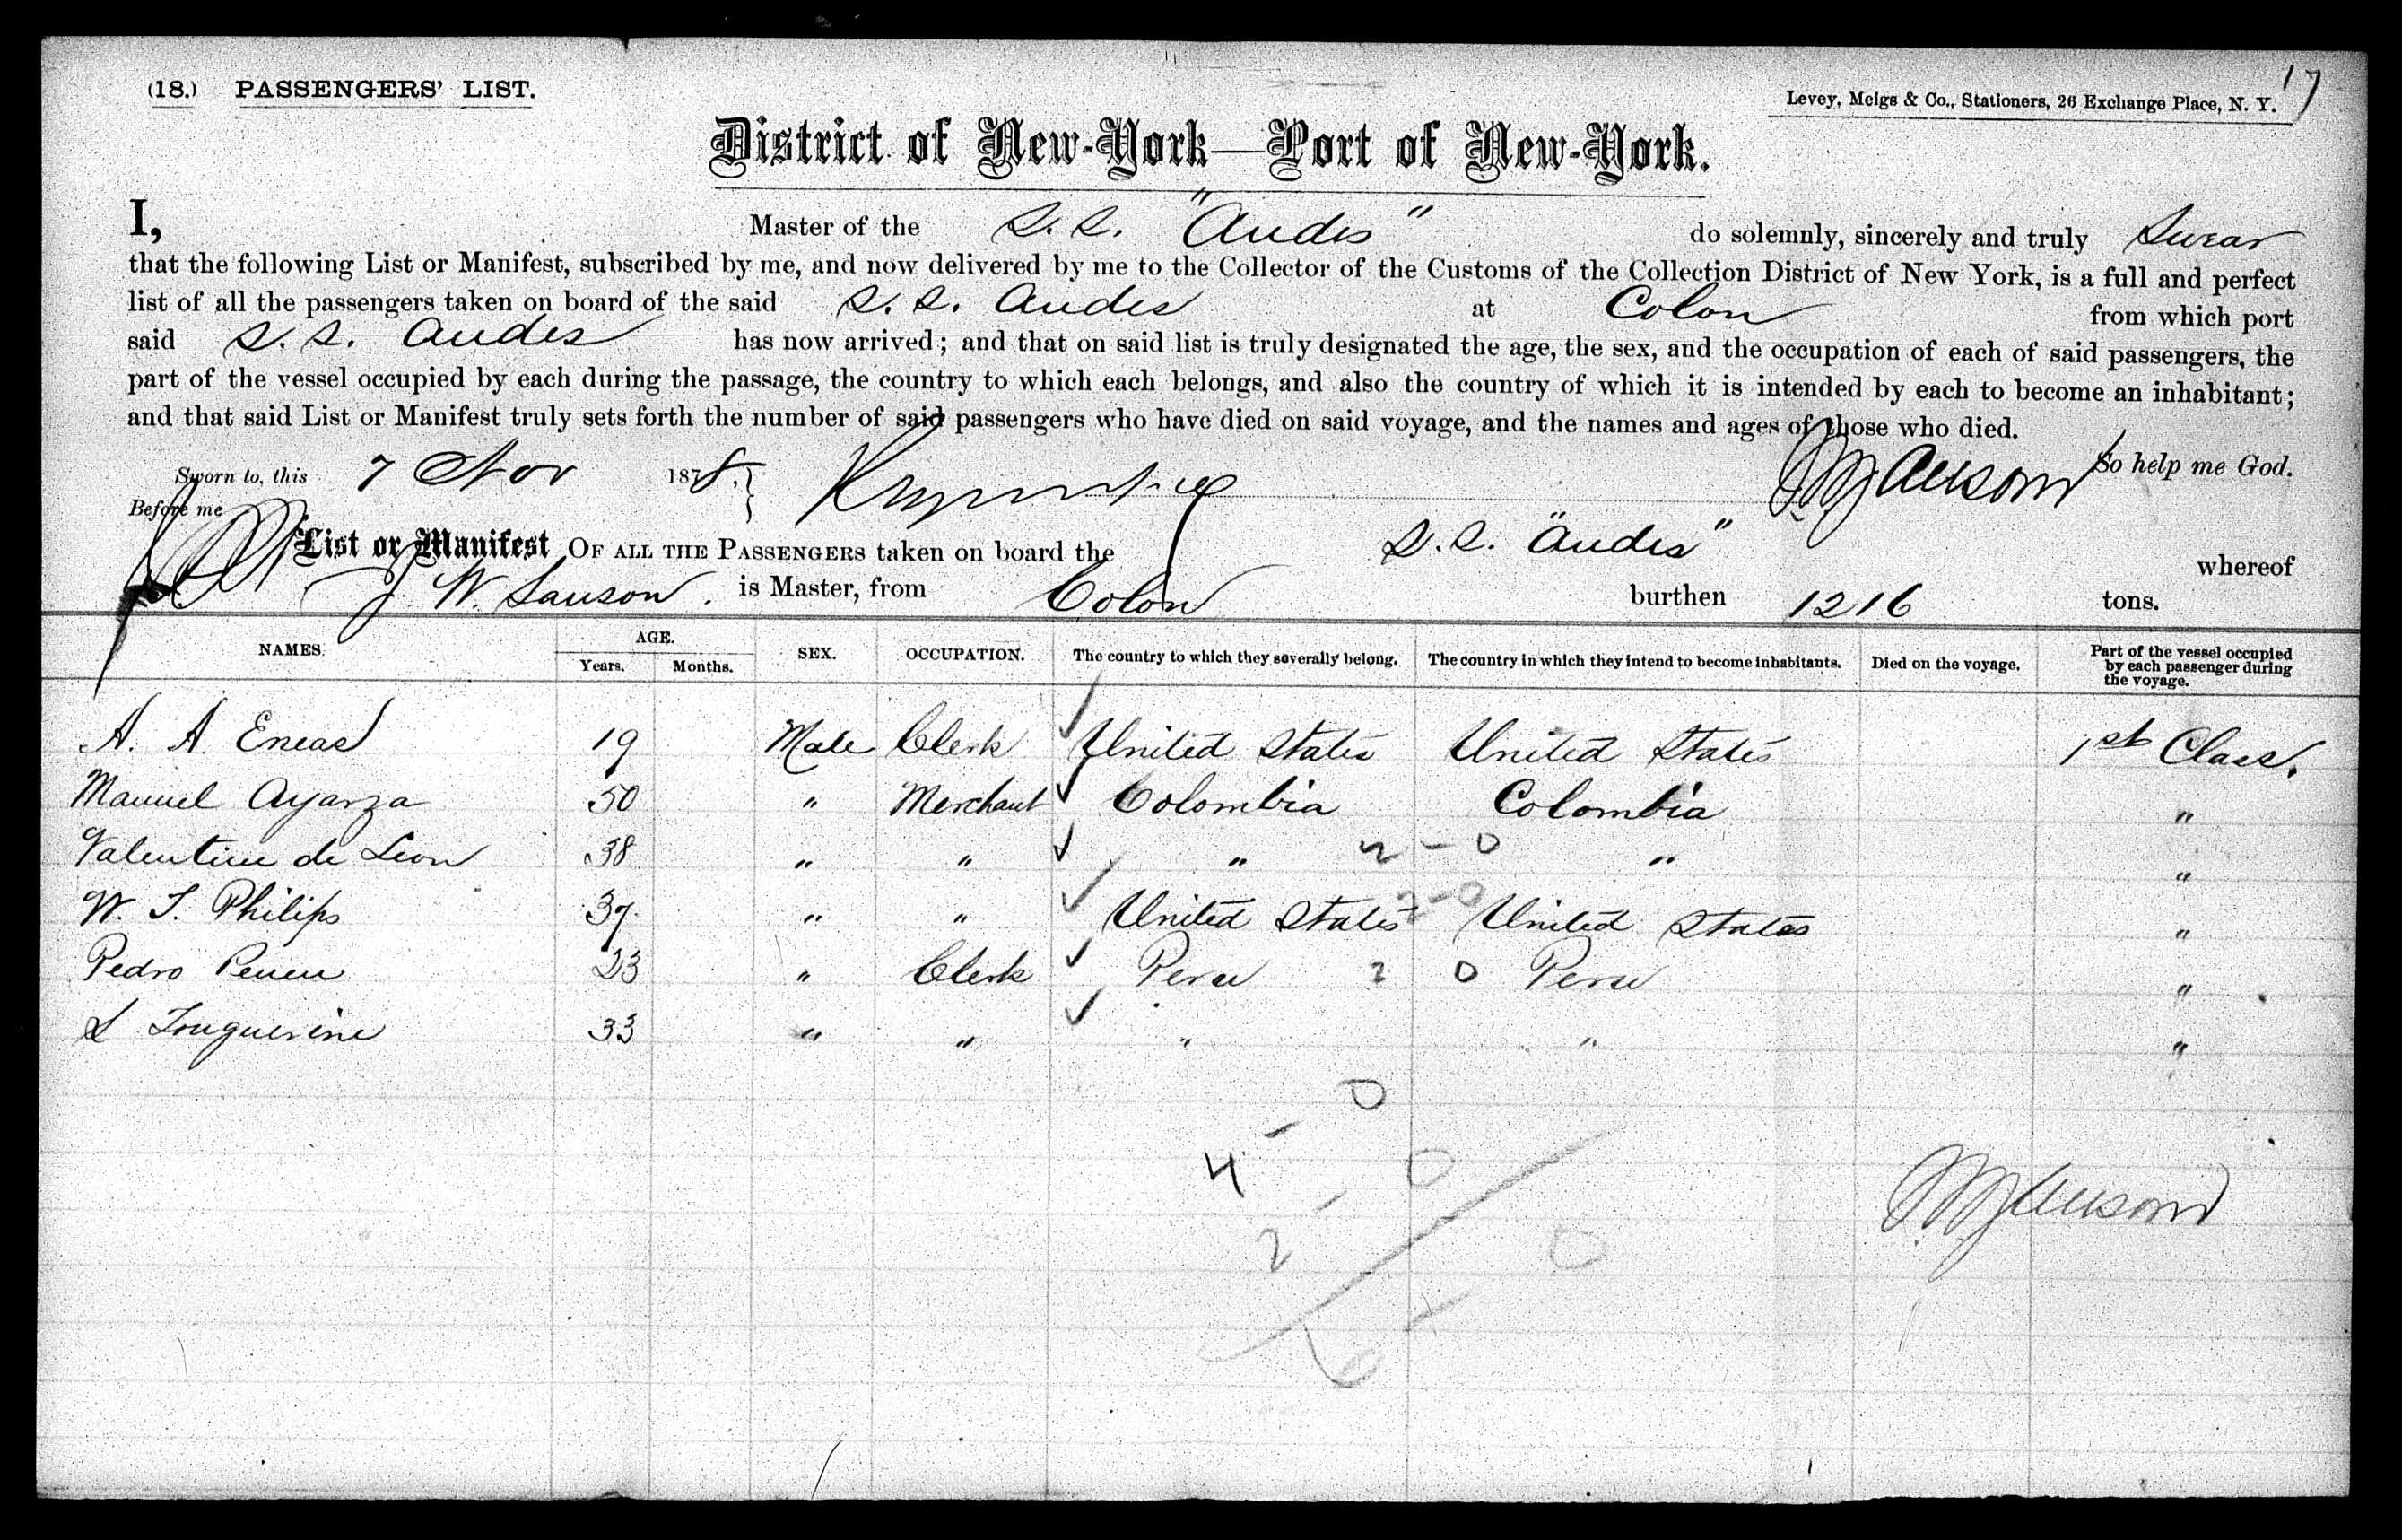 (18.) PASSENGERS' LIST.
17
Levey, Meigs & Co., Stationers, 26 Exchange Place, N. Y.
District of New-York—Port of New-York.
I, Master of the S.S. "Andes" do solemnly, sincerely and truly Swear
that the following List or Manifest, subscribed by me, and now delivered by me to the Collector of the Customs of the Collection District of New York, is a full and perfect
list of all the passengers taken on board of the said S.S. Andes at Colon from which port
said S.S. Andes has now arrived; and that on said list is truly designated the age, the sex, and the occupation of each of said passengers, the
part of the vessel occupied by each during the passage, the country to which each belongs, and also the country of which it is intended by each to become an inhabitant;
and that said List or Manifest truly sets forth the number of said passengers who have died on said voyage, and the names and ages of those who died.
Sworn to, this 7 Nov 1878. So help me God.
Before me
List or Manifest OF ALL THE PASSENGERS taken on board the S.S. "Andes" whereof
J. W. Sauson. is Master, from Colon burthen 1216 tons.
NAMES. AGE. Years. Months. SEX. OCCUPATION. The country to which they severally belong. The country in which they intend to become inhabitants. Died on the voyage. Part of the vessel occupied by each passenger during the voyage.
A. A. Eneas 19 Male Clerk United States United States 1st Class.
Manuel Ayarza 50 " Merchant Colombia Colombia "
Valentine de Leon 38 " " " 2 - 0 " "
W. S. Philips 37 " " United States 2-0 United States "
Pedro 23 " Clerk Peru 2 0 Peru "
S 33 " " " " "
4 - 0
2 - 0
6 - 0